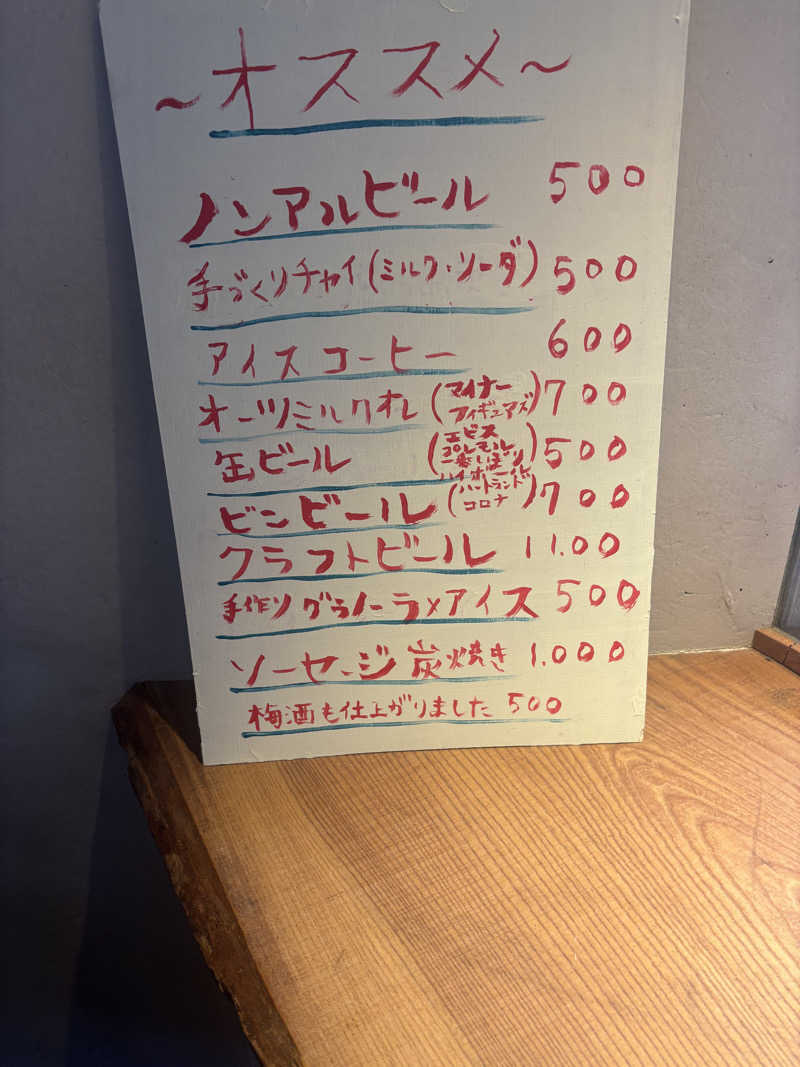 ～オススメ～
ノンアルビール 500
手づくりチャイ(ミルク・ソーダ) 500
アイスコーヒー 600
オーツミルクオレ(マイナーフィギュアズ) 700
缶ビール(エビス
プレモル
一番しぼり
ハイボール) 500
ビンビール(ハートランド
コロナ) 700
クラフトビール 11.00
手作りグラノーラ×アイス 500
ソーセージ炭焼き 1.000
梅酒も仕上がりました 500